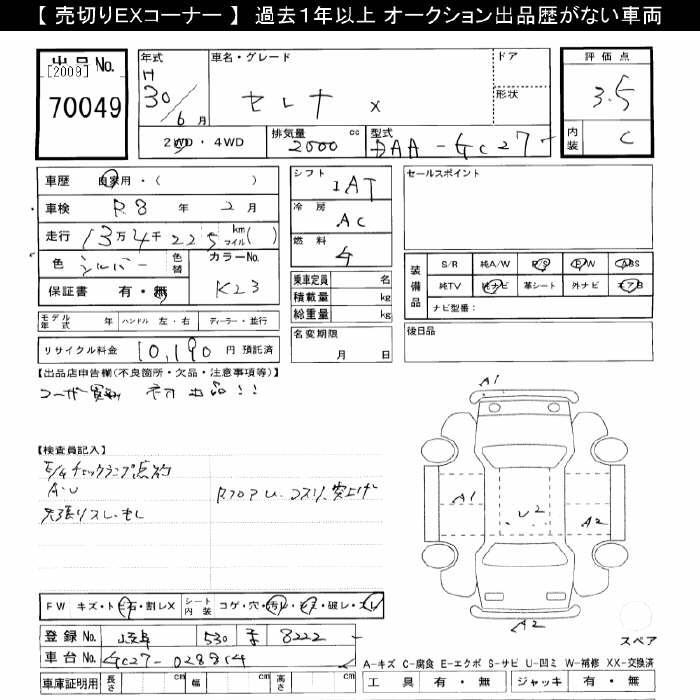 【 売切りEXコーナー 】 過去１年以上 オークション出品歴がない車両
出品 No.
[2009]
70049
年式
H
30/6月
車名・グレード
セレナ x
ドア
形状
2WD・4WD
排気量 cc
2000
型式
DAA-GC27
評価点
3.5
内装
C
車歴 自家用・( )
車検 R8 年 2 月
走行 13万4千225 km マイル( )
色 シルバー 色替
カラーNo. K23
保証書 有・無
モデル年式 年 ハンドル 左・右 ディーラー・並行
リサイクル料金 10,190 円 預託済
シフト
IAT
冷房
AC
燃料
乗車定員 名
積載量 kg
総重量 kg
名変期限
月 日
セールスポイント
装備品
S/R 純A/W P/S P/W ABS
純TV 純ナビ 革シート 外ナビ エアB
ナビ型番：
後日品
【出品店申告欄(不良箇所・欠品・注意事項等)】
ユーザー買取 初出品!!
【検査員記入】
E/gチェックランプ点灯
A・U
RフロアU、コスリ、突上げ
天張りスレ・もし
FW キズ・ト ビ石・割レX
シート内装 コゲ・穴・汚レ・シミ・破レ・スレ
登録No. 岐阜 530 8222
車台No. GC27-028814
車庫証明用 長さ cm 幅 cm 高さ cm
A1
A1
U2
A2
A2
スペア
A-キズ C-腐食 E-エクボ S-サビ U-凹ミ W-補修 XX-交換済
工具 有・無 ジャッキ 有・無